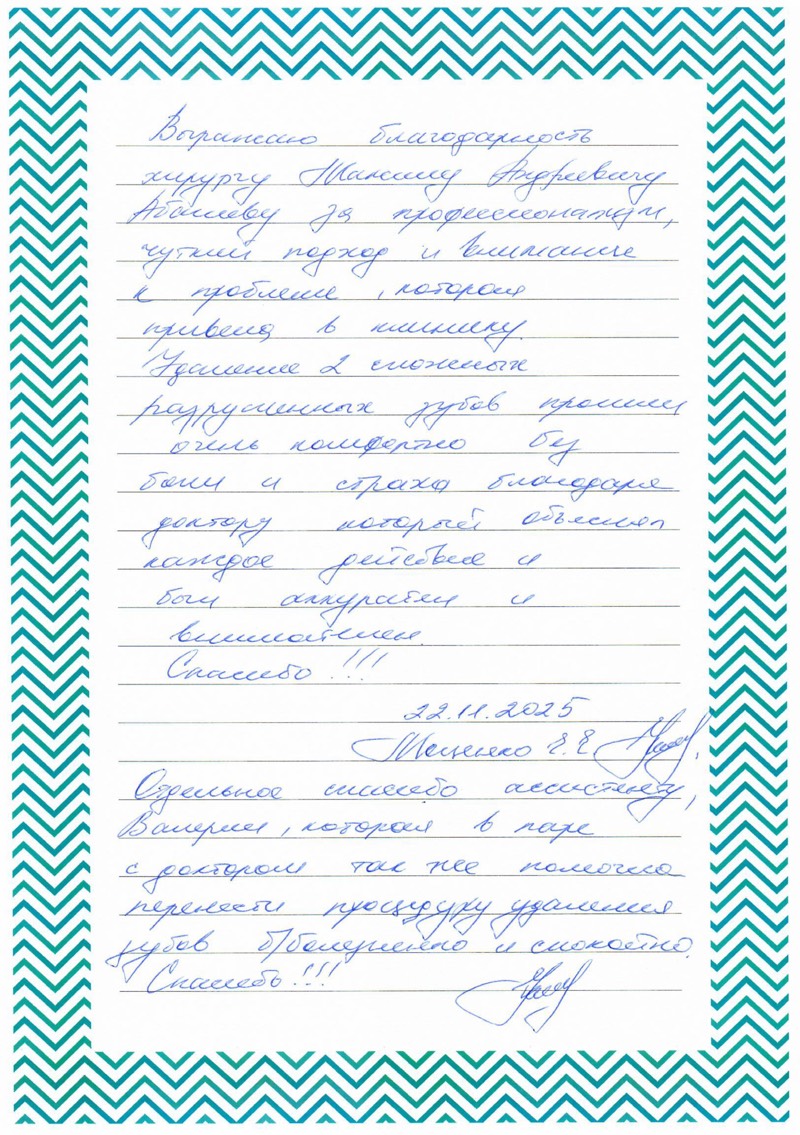 Выражаю благодарность
хирургу Максиму Андреевичу
за профессионализм,
чуткий подход и внимание
к проблеме, которая
привела в клинику.
Удаление 2 сложных
разрушенных зубов прошли
очень комфортно без
боли и страха благодаря
доктору который объяснял
каждое действие и
был аккуратен и
внимателен.
Спасибо !!!
22.11.2025
Е.Е
Отдельное спасибо ассистенту,
Валерии, которая в паре
с доктором так же помогла
перенести процедуру удаления
зубов б/болезненно и спокойно.
Спасибо!!!